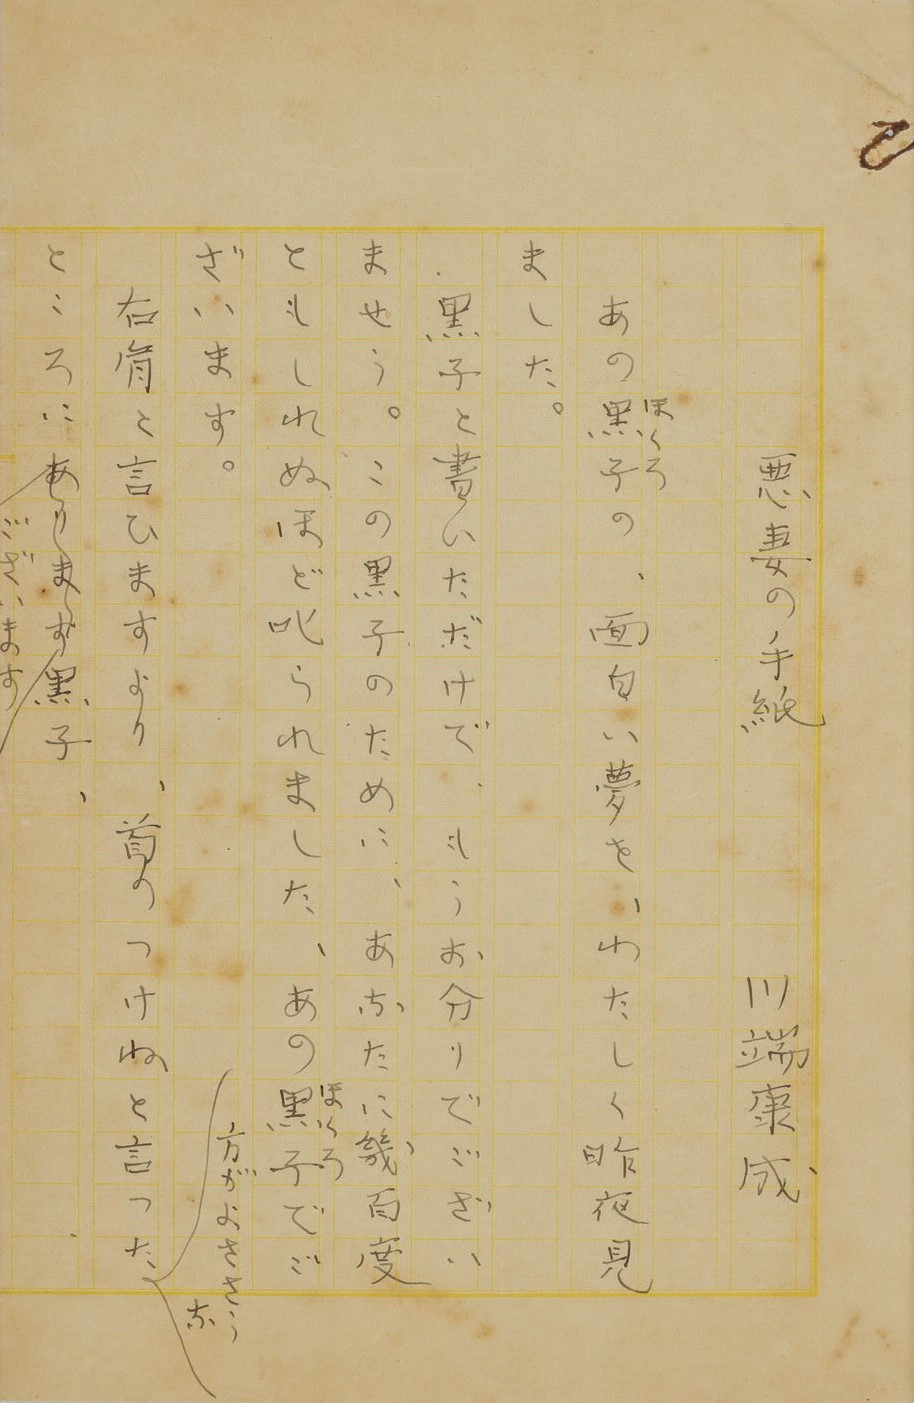 悪妻の手紙
川端康成
あの黒子の、面白い夢を、わたしく昨夜見
ほくろ
ました。
黒子と書いただけで、もうお分りでござい
ませう。この黒子のために、あなたに幾百度
ともしれぬほど叱られました、あの黒子でご
ほくろ
ざいます。
右肩と言ひますより、首のつけねと言つた
方がよささうな
ところにあります黒子、
ございます